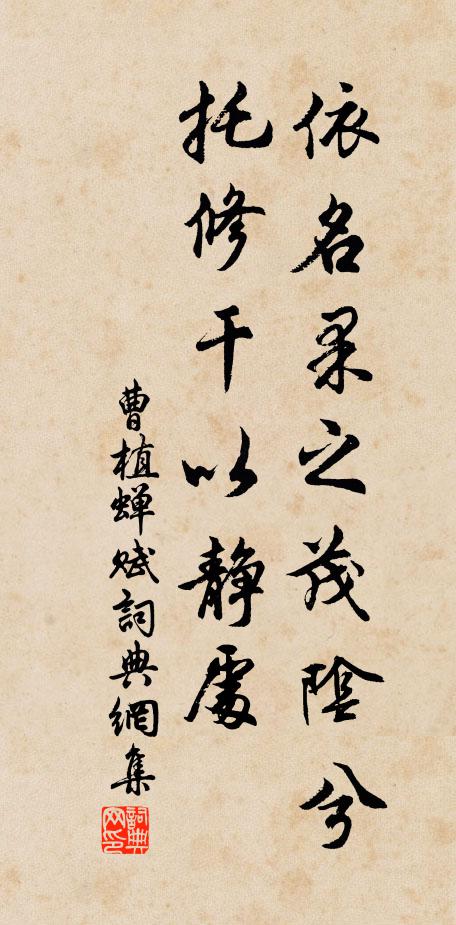 依名果之茂陰兮
托修干以靜處
曹植蟬賦詞典網集
詞典网印